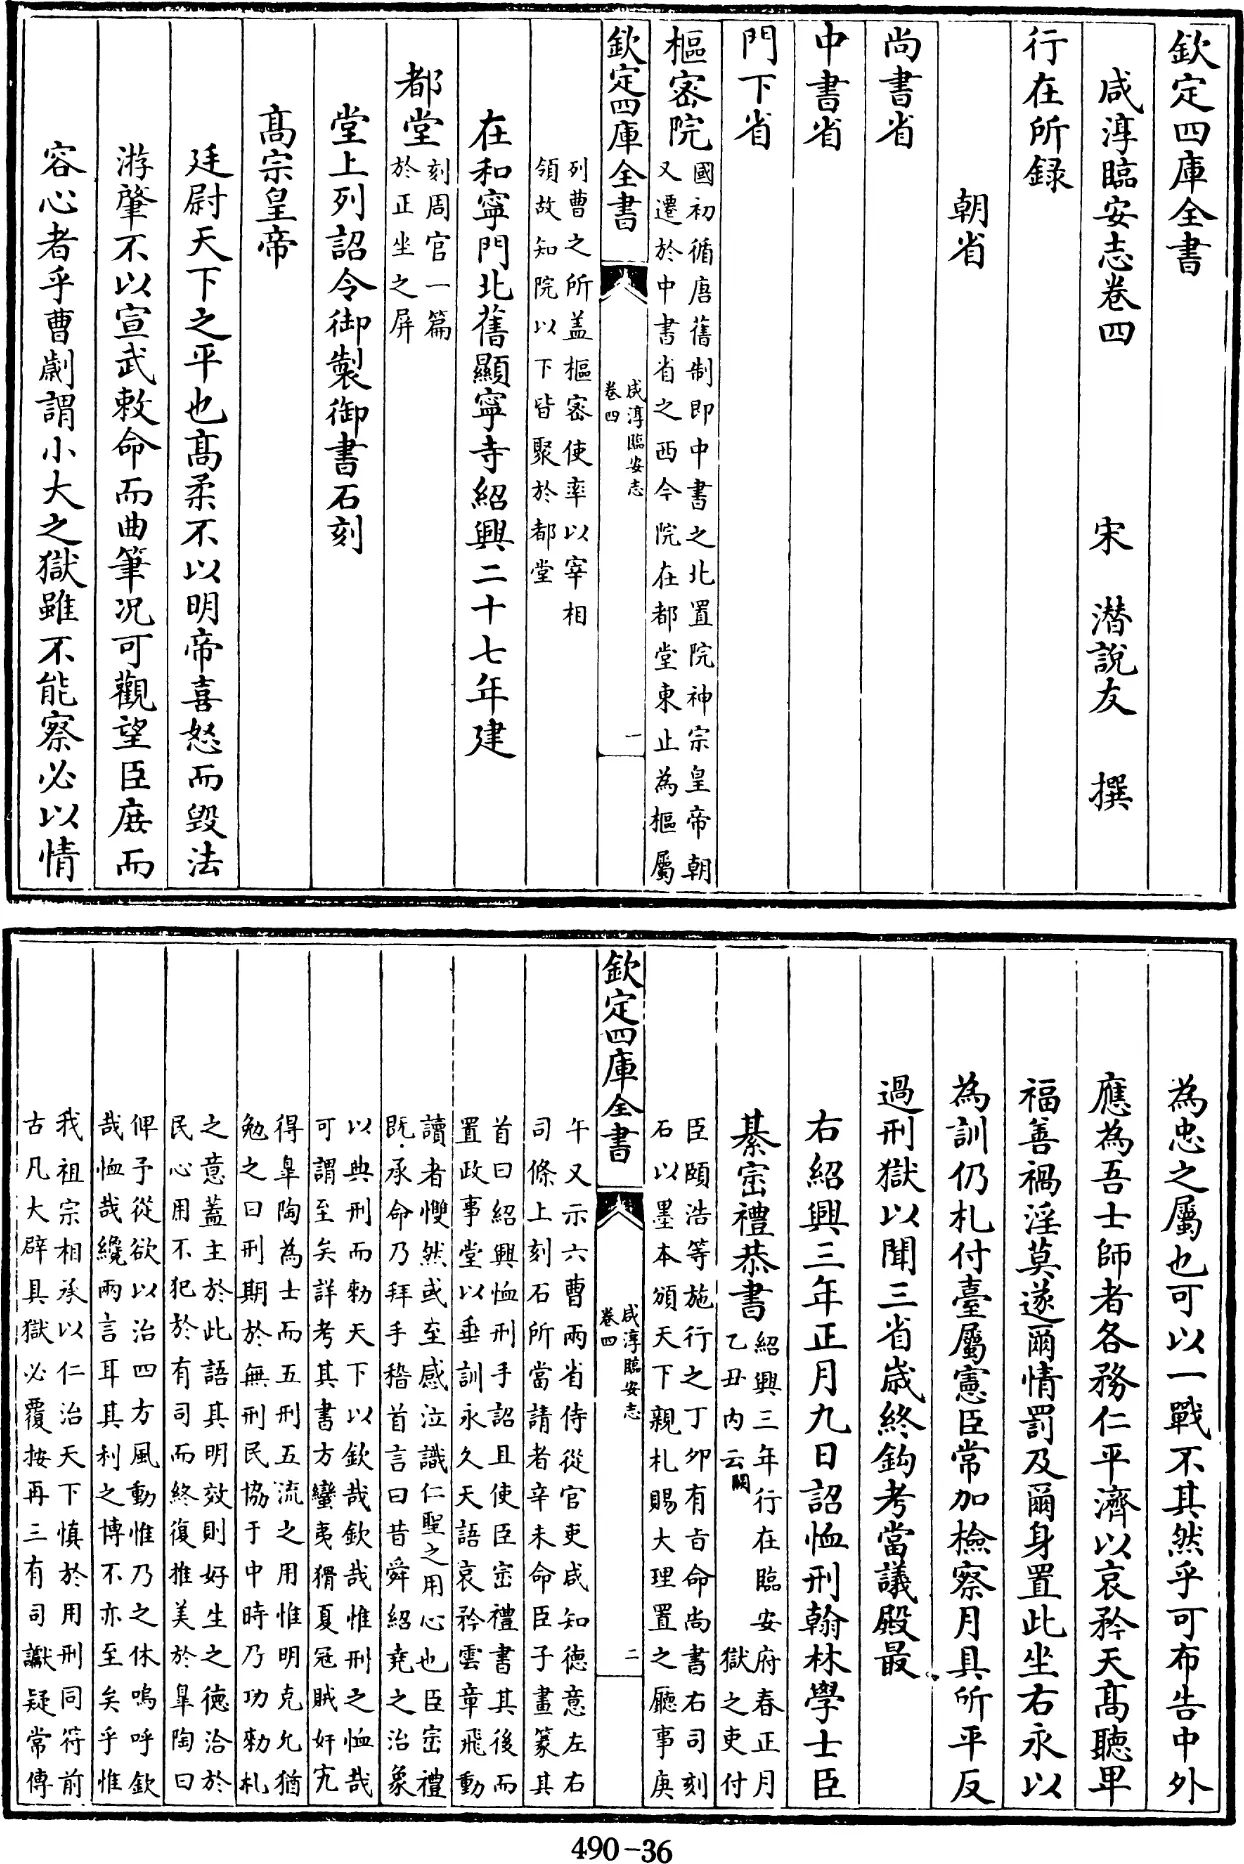 欽定四庫全書
咸淳臨安志卷四
宋 潛說友 撰
行在所録
朝省
尚書省
中書省
門下省
樞密院國初循唐舊制即中書之北置院神宗皇帝朝
又遷於中書省之西今院在都堂東止為樞屬
欽定四庫全書 咸淳臨安志 卷四 一
列曹之所盖樞密使率以宰相
領故知院以下皆聚於都堂
在和寧門北舊顯寧寺紹興二十七年建
都堂刻周官一篇
於正坐之屏
堂上列詔令御製御書石刻
髙宗皇帝
廷尉天下之平也髙柔不以明帝喜怒而毁法
游肇不以宣武敕命而曲筆况可觀望臣庶而
容心者乎曹劌謂小大之獄雖不能察必以情
為忠之屬也可以一戰不其然乎可布告中外
應為吾士師者各務仁平濟以哀矜天髙聽卑
福善禍淫莫遂爾情罰及爾身置此坐右永以
為訓仍札付臺屬憲臣常加檢察月具所平反
過刑獄以聞三省嵗終鈎考當議殿最
右紹興三年正月九日詔恤刑翰林學士臣
綦崈禮恭書紹興三年行在臨安府春正月
乙丑内云闕獄之吏付
臣頤浩等施行之丁夘有㫖命尚書右司刻
石以墨本頒天下親札賜大理置之廳事庚
欽定四庫全書 咸淳臨安志 卷四 二
午又示六曹兩省侍從官吏咸知德意左右
司條上刻石所當請者辛未命臣子畫篆其
首曰紹興恤刑手詔且使臣崈禮書其後而
置政事堂以垂訓永久天語哀矜雲章飛動
讀者慨然或至感泣識仁聖之用心也臣崈禮
既承命乃拜手稽首言曰昔舜紹堯之治象
以典刑而勑天下以欽哉欽哉惟刑之恤哉
可謂至矣詳考其書方蠻夷猾夏冦賊奸宄
得臯陶為士而五刑五流之用惟明克允猶
勉之曰刑期於無刑民協于中時乃功勑札
之意蓋主於此語其明效則好生之德洽於
民心用不犯於有司而終復推美於臯陶曰
俾予從欲以治四方風動惟乃之休嗚呼欽
哉恤哉纔兩言耳其利之博不亦至矣乎惟
我祖宗相承以仁治天下慎於用刑同符前
古凡大辟具獄必覆按再三有司讞疑常傅